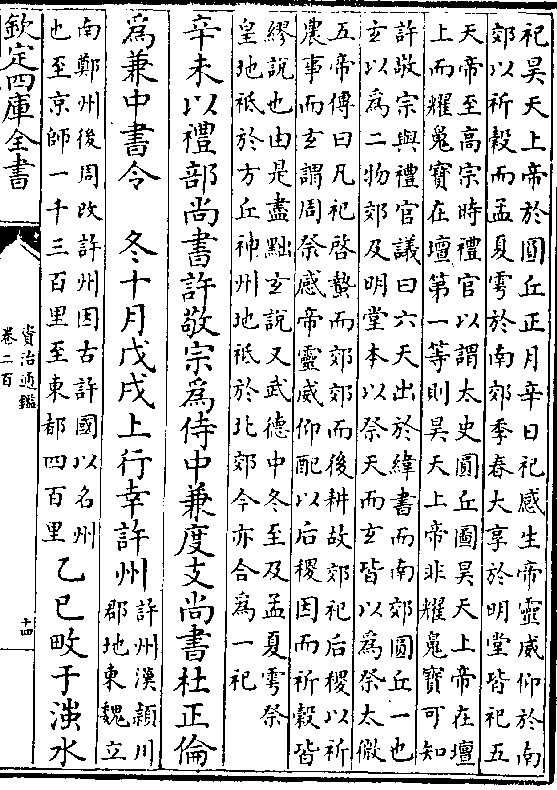 祀昊天上帝於圓丘正月辛日祀感生帝靈威仰於南
郊以祈穀而孟夏雩於南郊季春大享於明堂皆祀五
天帝至高宗時禮官以謂太史圓丘圖昊天上帝在壇
上而耀魄寶在壇第一等則昊天上帝非耀魄寶可知
許敬宗與禮官議曰六天出於緯書而南郊圓丘一也
玄以為二物郊及明堂本以祭天而玄皆以為祭太微
五帝傳曰凡祀啓蟄而郊郊而後耕故郊祀后稷以祈
農事而玄謂周祭感帝靈威仰配以后稷因而祈穀皆
繆說也由是盡黜玄說又武德中冬至及孟夏雩祭
皇地祇於方丘神州地祇於北郊今亦合為一祀
辛未以禮部尚書許敬宗為侍中兼度支尚書杜正倫
為兼中書令 冬十月戊戌上行幸許州許州漢潁川
郡地東魏立
南鄭州後周改許州因古許國以名州
也至京師一千三百里至東都四百里乙巳畋于滍水
欽定四庫全書
資治通鑑
卷二百
十四